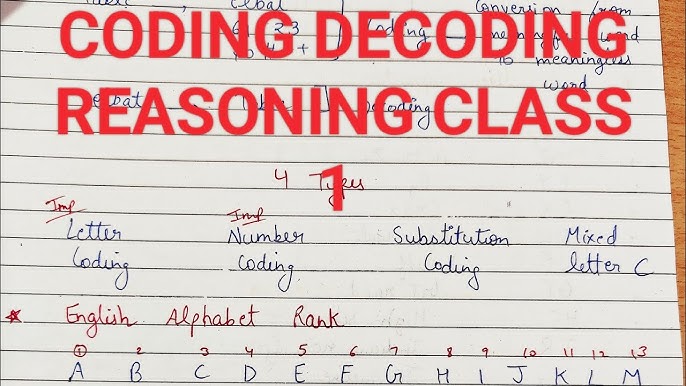 CODING DECODING
REASONING CLASS
1
Conversion from
word
to meaningless
word
Coding
Decoding
4 Types
Imp Imp
Letter Number Substitution Mixed
Coding Coding Coding letter C
* English Alphabet Rank
1 2 3 4 5 6 7 8 9 10 11 12 13
A B C D E F G H I J K L M